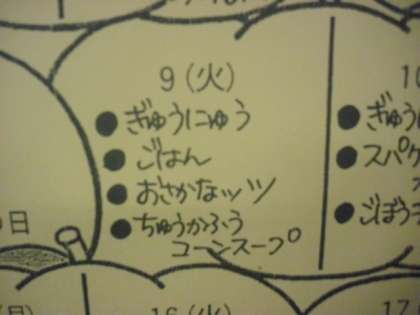 9(火)
●ぎゅうにゅう
●ごはん
●おさかなナッツ
●ちゅうかふう
コーンスープ
10
●ぎゅう
●スパゲ
●ごぼう
日
(月)
16(火)
17